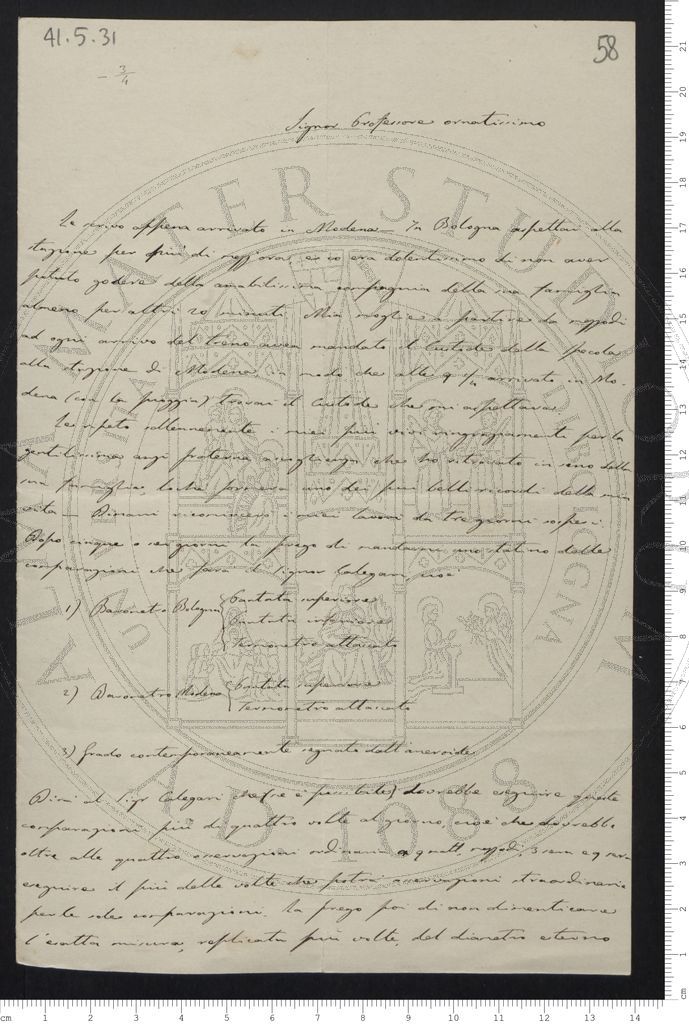 41.5.31
58
– 3/4
Signor Professore ornatissimo
Le scrivo appena arrivato in Modena – In Bologna aspettai alla
stazione per più di mezz'ora, ed io era dolentissimo di non aver
potuto godere della amabilissima compagnia della sua famiglia
almeno per altri 20 minuti. Mia moglie a partire da mezzodì
ad ogni arrivo del treno avea mandato il Custode della Specola
alla stazione di Modena, in modo che alle 9 1/4 arrivato in Mo-
dena (con la pioggia) trovai il Custode che mi aspettava.
Le ripeto sollennemente i miei più vivi ringraziamenti per la
gentilissima anzi fraterna accoglienza che ho ritrovato in seno della
sua famiglia, locchè formerà uno dei più belli ricordi della mia
vita – Dimani ricomincio i miei lavori da tre giorni sospesi.
Dopo cinque o sei giorni La prego di mandarmi uno statino delle
comparazioni che farà il Signor Calegari, cioè
1) Barometro Bologna
Puntata superiore
Puntata inferiore
Termometro attaccato
2) Barometro Modena
Puntata superiore
Termometro attaccato
3) Grado contemporaneamente segnato dall'aneroide.
Dica al Sigr Calegari che (se è possibile) dovrebbe eseguire queste
comparazioni più di quattro volte al giorno, cioè che dovrebbe
oltre alle quattro osservazioni ordinarie mezzodì, 3 sera e 9 sera
eseguire il più delle volte che potrà osservazioni straordinarie
per le sole comparazioni. La prego poi di non dimenticare
l'esatta misura, replicata più volte, del diametro esterno